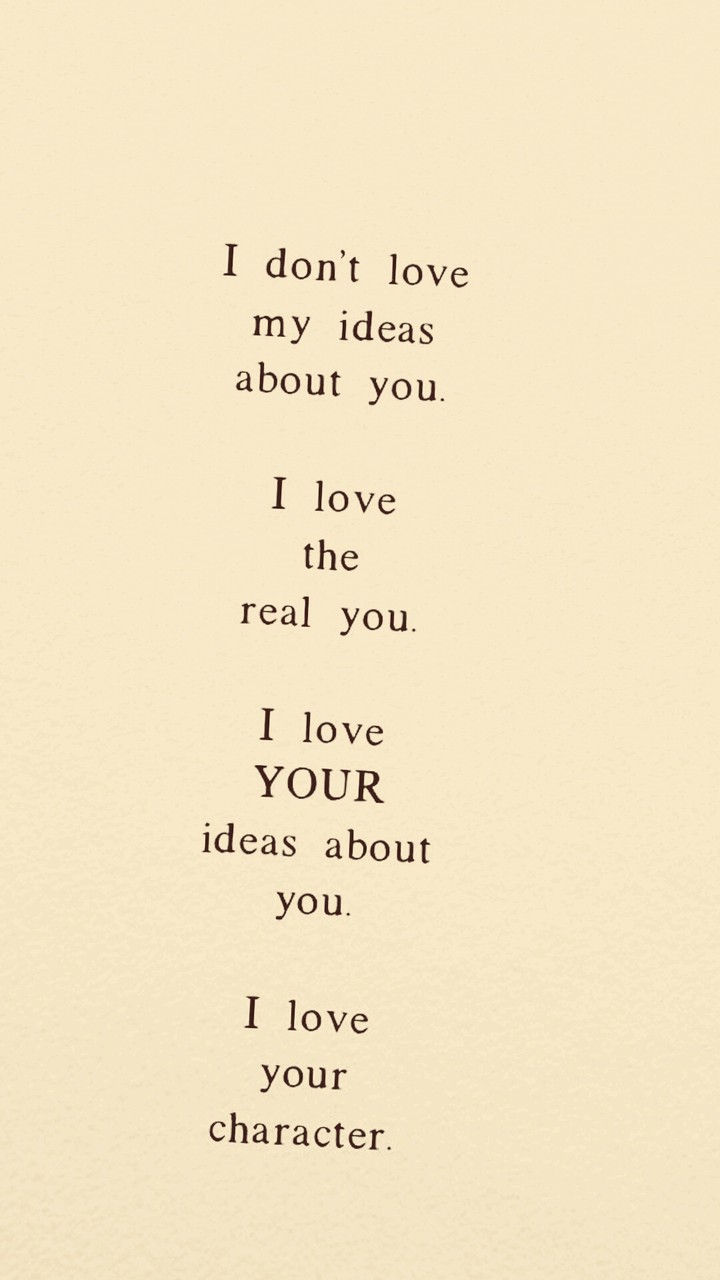 I don't love
my ideas
about you.
I love
the
real you.
I love
YOUR
ideas about
you.
I love
your
character.